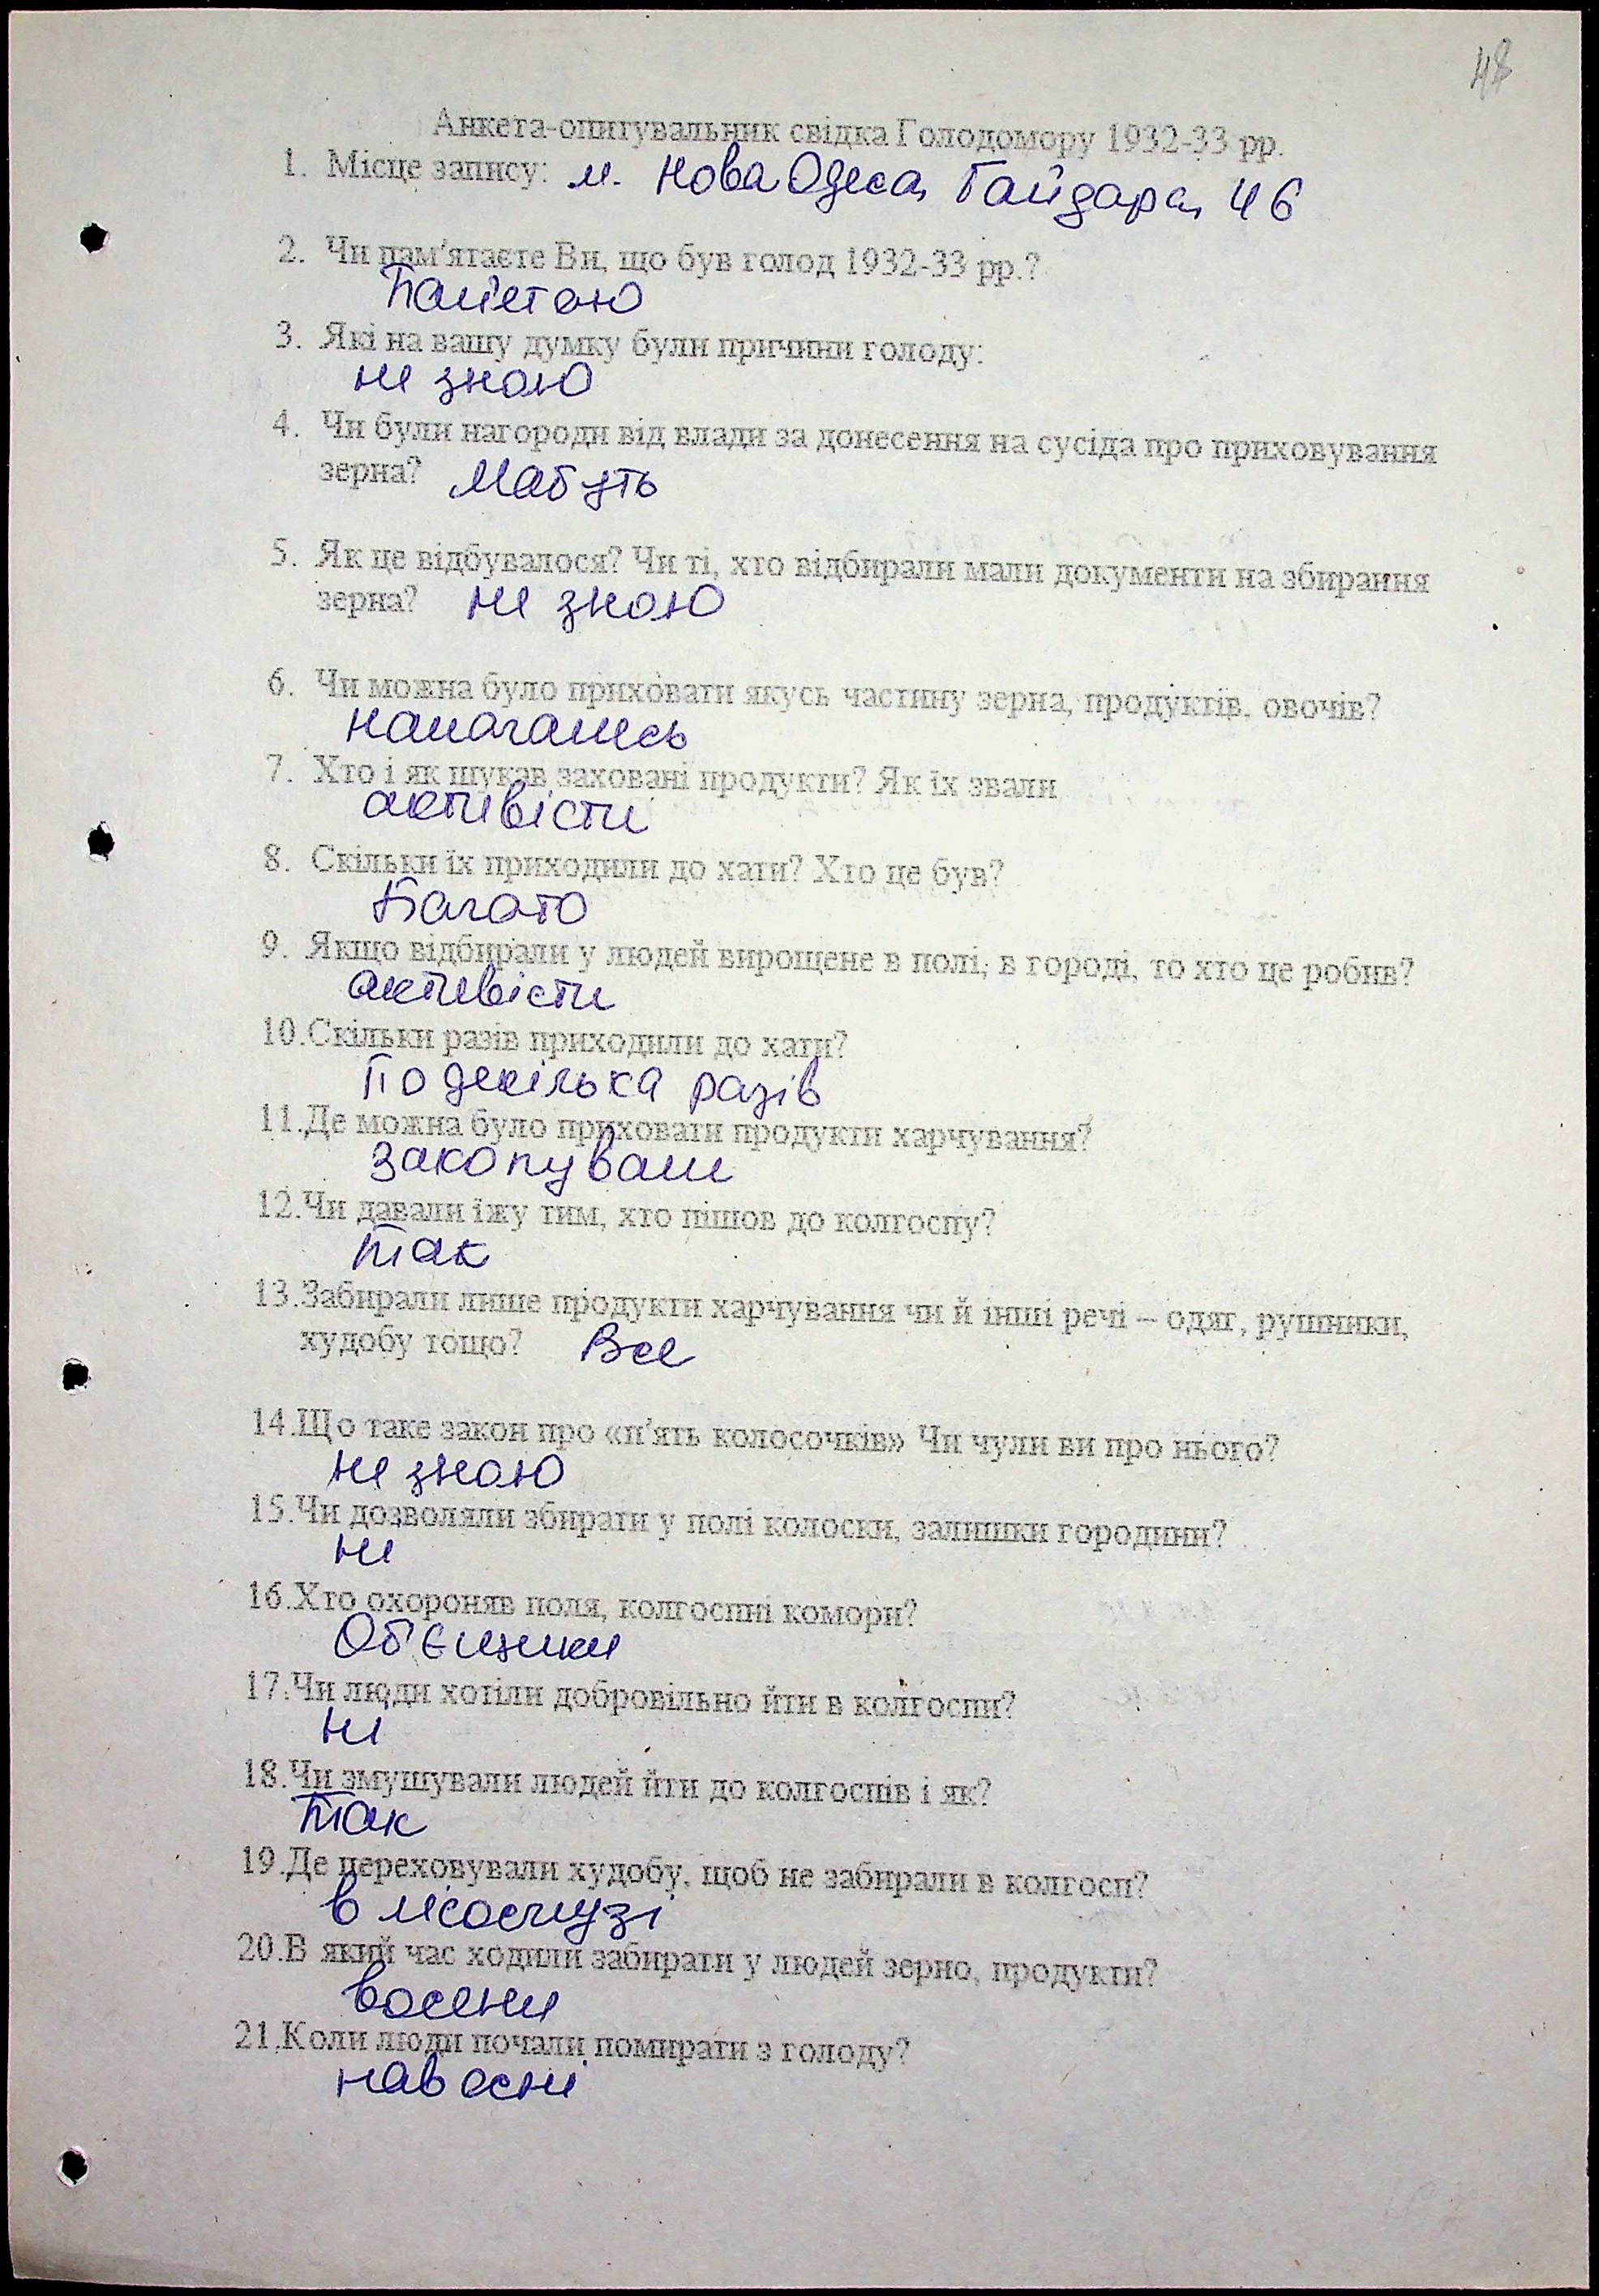 48
Анкета-опитувальник свідка Голодомору 1932-33 рр.
1. Місце запису: м. Нова Одеса, Гайдара, 46
2. Чи пам'ятаєте Ви, що був голод 1932-33 рр.?
Пам'ятаю
3. Які на вашу думку були причини голоду:
не знаю
4. Чи були нагороди від влади за донесення на сусіда про приховування
зерна? Мабуть
5. Як це відбувалося? Чи ті, хто відбирали мали документи на збирання
зерна? не знаю
6. Чи можна було приховати якусь частину зерна, продуктів, овочів?
намагались
7. Хто і як шукав заховані продукти? Як їх звали
активісти
8. Скільки їх приходили до хати? Хто це був?
Багато
9. Якщо відбирали у людей вирощене в полі, в городі, то хто це робив?
активісти
10.Скільки разів приходили до хати?
По декілька разів
11.Де можна було приховати продукти харчування?
закопували
12.Чи давали їжу тим, хто пішов до колгоспу?
так
13.Забирали лише продукти харчування чи й інші речі – одяг, рушники,
худобу тощо? Все
14.Що таке закон про «п'ять колосочків» Чи чули ви про нього?
не знаю
15.Чи дозволяли збирати у полі колоски, залишки городини?
ні
16.Хто охороняв поля, колгоспні комори?
Об'єщики
17.Чи люди хотіли добровільно йти в колгоспи?
ні
18.Чи змушували людей йти до колгоспів і як?
так
19.Де переховували худобу, щоб не забирали в колгосп?
в лісосмузі
20.В який час ходили забирати у людей зерно, продукти?
восени
21.Коли люди почали помирати з голоду?
навесні